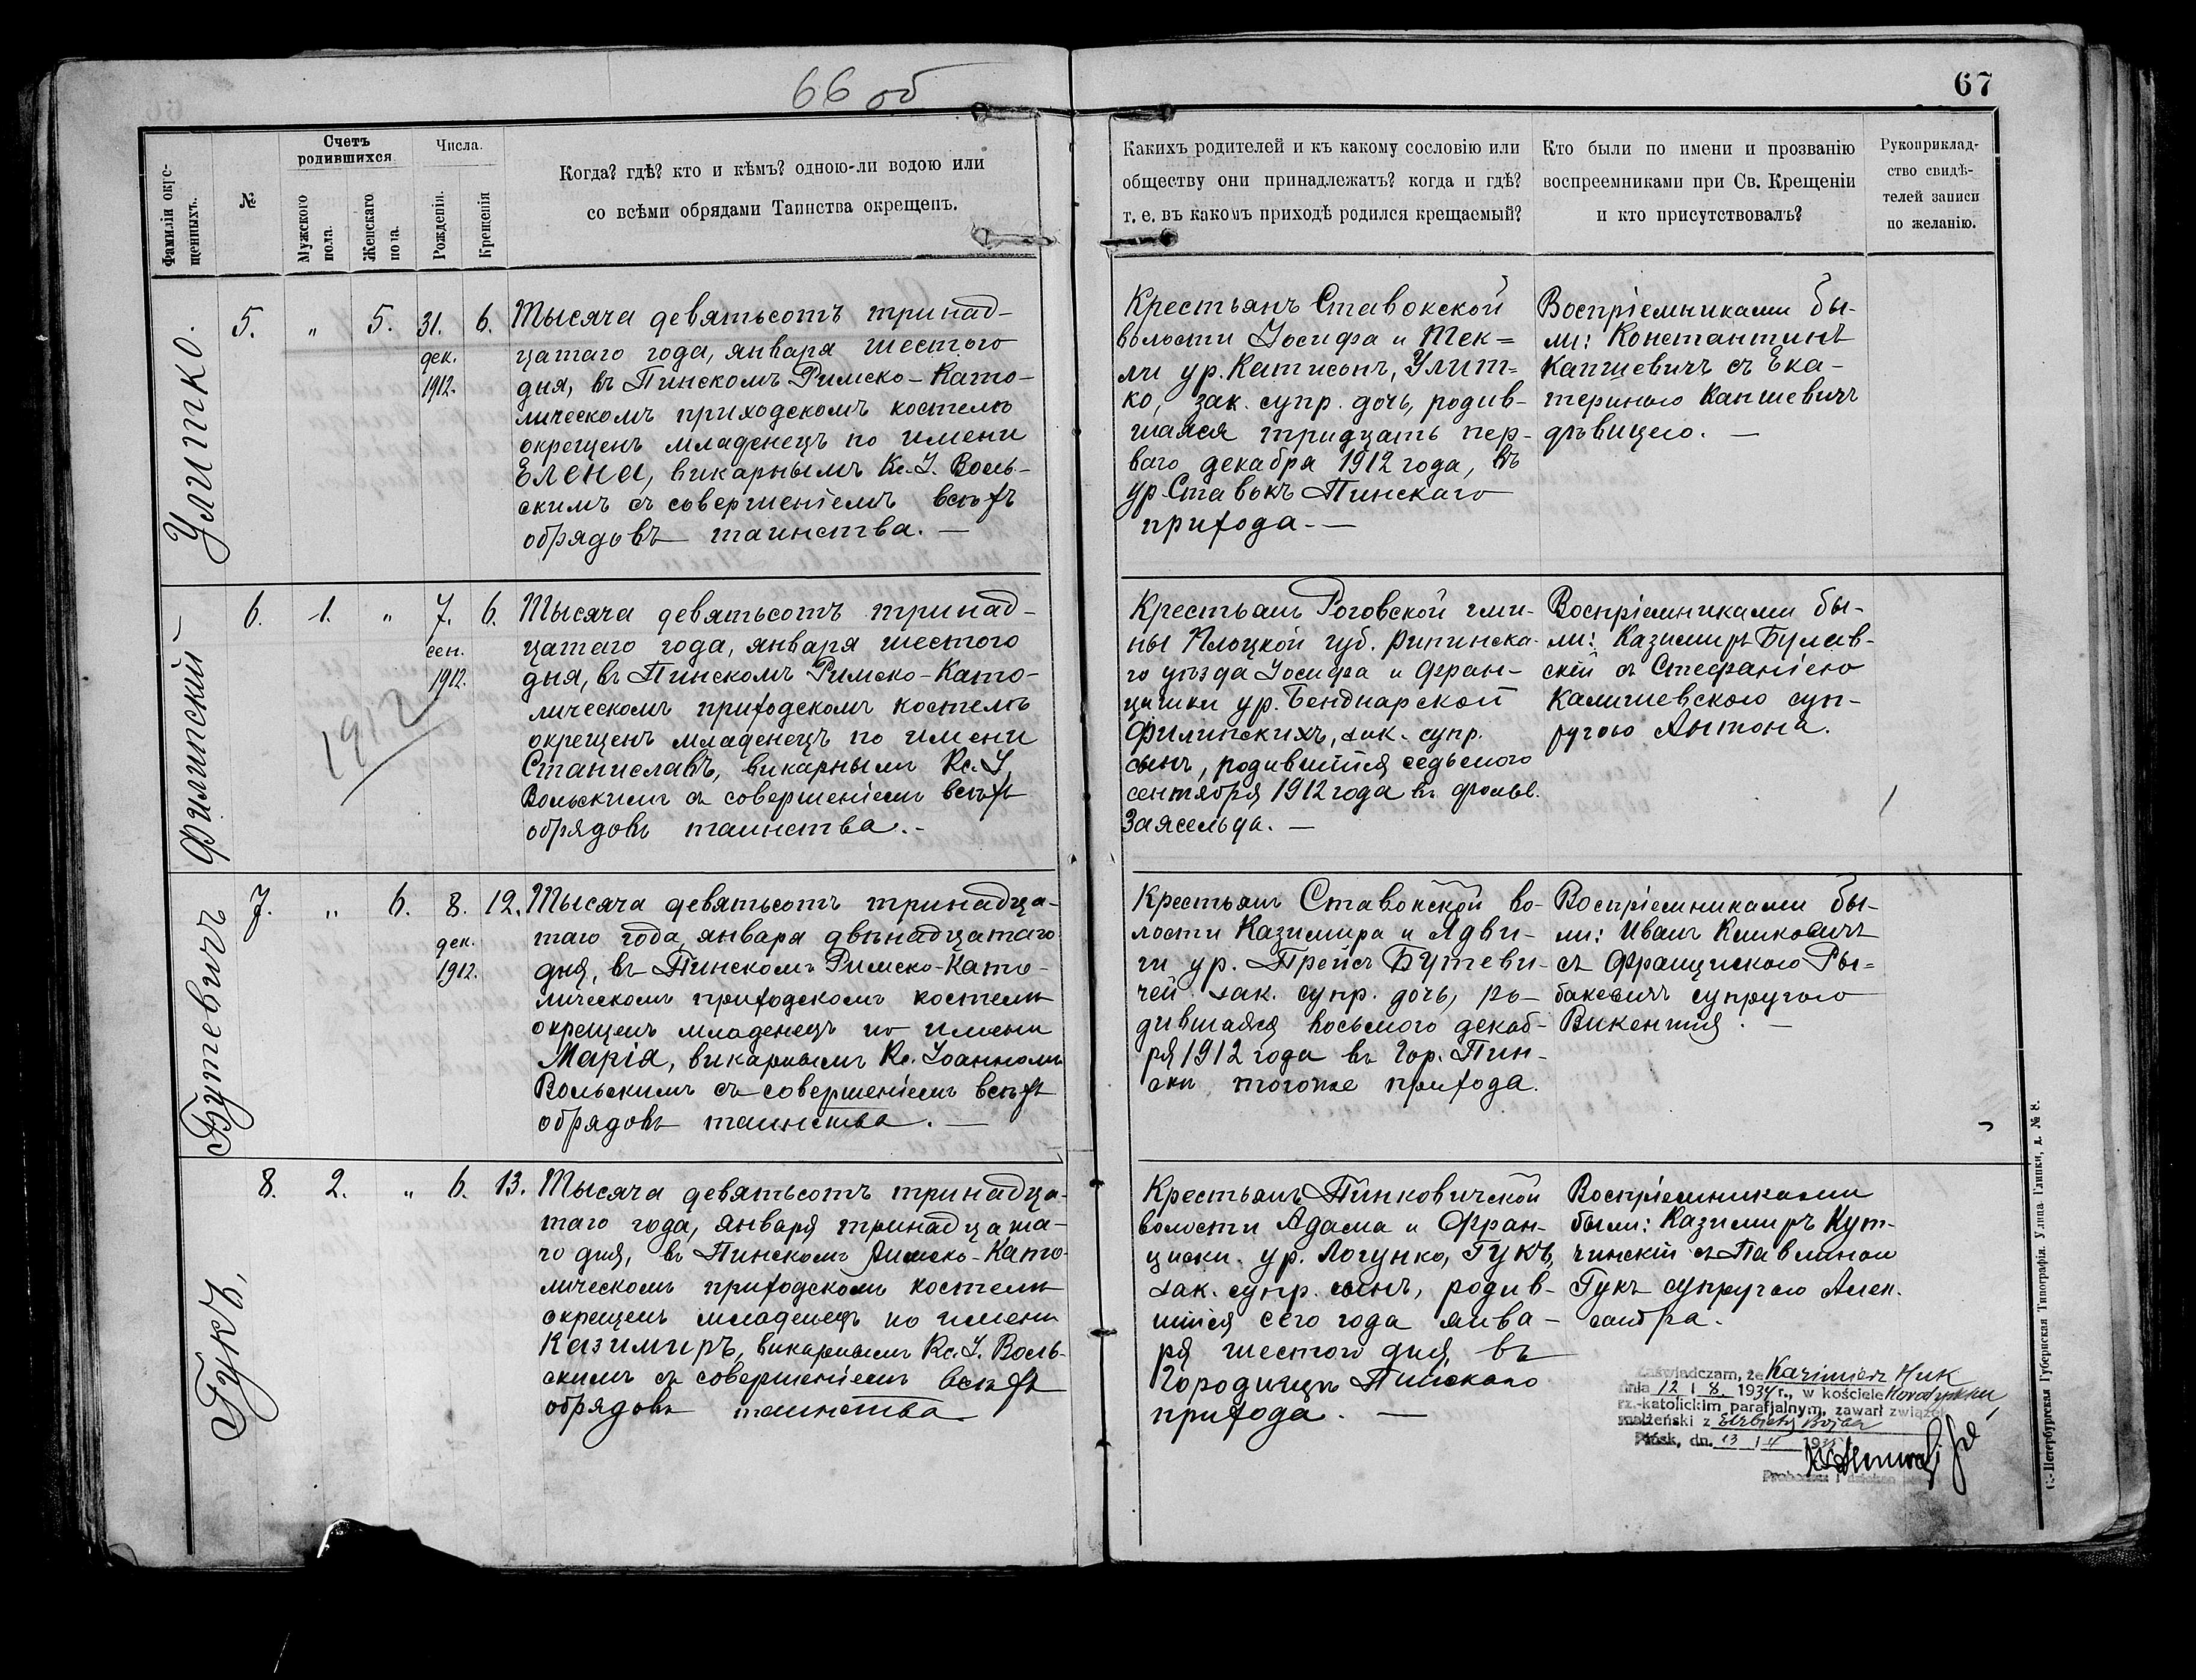 66 об
67
Фамиліи окре-
щенныхъ.
№
Счетъ
родившихся
Мужского
пола.
Женскаго
пола.
Числа.
Рожденія.
Крещенія
Когда? гдѣ? кто и кѣмъ? одною-ли водою или
со всѣми обрядами Таинства окрещенъ.
Какихъ родителей и къ какому сословію или
обществу они принадлежатъ? когда и гдѣ?
т. е. въ какомъ приходѣ родился крещаемый?
Кто были по имени и прозванію
воспреемниками при Св. Крещеніи
и кто присутствовалъ?
Рукоприклад-
ство свидѣ-
телей записи
по желанію.
Улитко.
5. " 5. 31. 6.
дек.
1912.
Тысяча девятьсотъ тринад-
цатаго года, января шестого
дня, въ Пинскомъ Римско-Като-
лическомъ приходскомъ костелѣ
окрещенъ младенецъ по имени
Елена, викарнымъ Кс. І. Воль-
скимъ съ совершеніемъ всѣхъ
обрядовъ таинства. —
Крестьянъ Ставокской
волости Іосифа и Тек=
ли ур. Катисонъ, Улит=
ко, зак. супр. дочь, родив-
шаяся тридцать пер-
ваго декабря 1912 года, въ
ур. Ставокъ Пинскаго
прихода. —
Воспріемниками бы-
ли: Константинъ
Капшевичъ съ Ека-
териною Капшевичъ
дѣвицею. —
Филипский
6. 1. " 7. 6.
сен.
1912.
1912
Тысяча девятьсотъ тринад-
цатаго года, января шестого
дня, въ Пинскомъ Римско-Като-
лическомъ приходскомъ костелѣ
окрещенъ младенецъ по имени
Станиславъ, викарнымъ Кс. І.
Вольскимъ съ совершеніемъ всѣхъ
обрядовъ таинства. -
Крестьянъ Роговской гми-
ны Плоцкой губ. Рипинска-
го уѣзда Іосифа и Фран-
цишки ур. Бенднарской
Филипскихъ, зак. супр.
сынъ, родившійся седьмого
сентября 1912 года въ фольв.
Заясельда. —
Воспріемниками бы-
ли: Казимиръ Булав-
скій съ Стефаніею
Калишевскою суп-
ругою Антона.
Бутевичъ
7. " 6. 8. 12.
дек.
1912.
Тысяча девятьсотъ тринадца-
таго года, января двѣнадцатаго
дня, въ Пинскомъ Римско-Като-
лическомъ приходскомъ костелѣ
окрещенъ младенецъ по имени
Марія, викарнымъ Кс. Іоанномъ
Вольскимъ съ совершеніемъ всѣхъ
обрядовъ таинства. —
Крестьянъ Ставокской во-
лости Казимира и Ядви-
ги ур. Трейсъ Бутеви-
чей зак. супр. дочь, ро-
дившаяся восьмого декаб-
ря 1912 года въ Гор. Пин-
скѣ тогоже прихода.
Воспріемниками бы-
ли: Иванъ Климовичъ
съ Францискою Ры=
баковичъ супругою
Викентія. —
Гукъ,
8. 2. " 6. 13.
Тысяча девятьсотъ тринадца-
таго года, января тринадцата-
го дня, въ Пинскомъ Римско-Като-
лическомъ приходскомъ костелѣ
окрещенъ младенецъ по имени
Казимиръ, викарнымъ Кс. І. Воль-
скимъ съ совершеніемъ всѣхъ
обрядовъ таинства
Крестьянъ Пинковичской
волости Адама и Фран-
циски ур. Логунко, Гукъ,
зак. супр. сынъ, родив-
шійся сего года янва-
ря шестого дня, въ
Городищѣ Пинскаго
прихода. —
Воспріемниками
были: Казимиръ Кут-
чинскій съ Павлиною
Гукъ супругою Алек-
сандра.
Zaświadczam, że Kazimierz Huk
dnia 12 / 8. 1934 r., w kościele Horodyskim
rz.-katolickim parafjalnym, zawarł związek
małżeński z Elżbietą Bojca
Pińsk, dn. 13 / 4 1935
Proboszcz i dziekan
С.-Петербургская Губернская Типографія. Улица Глинки, д. № 8.